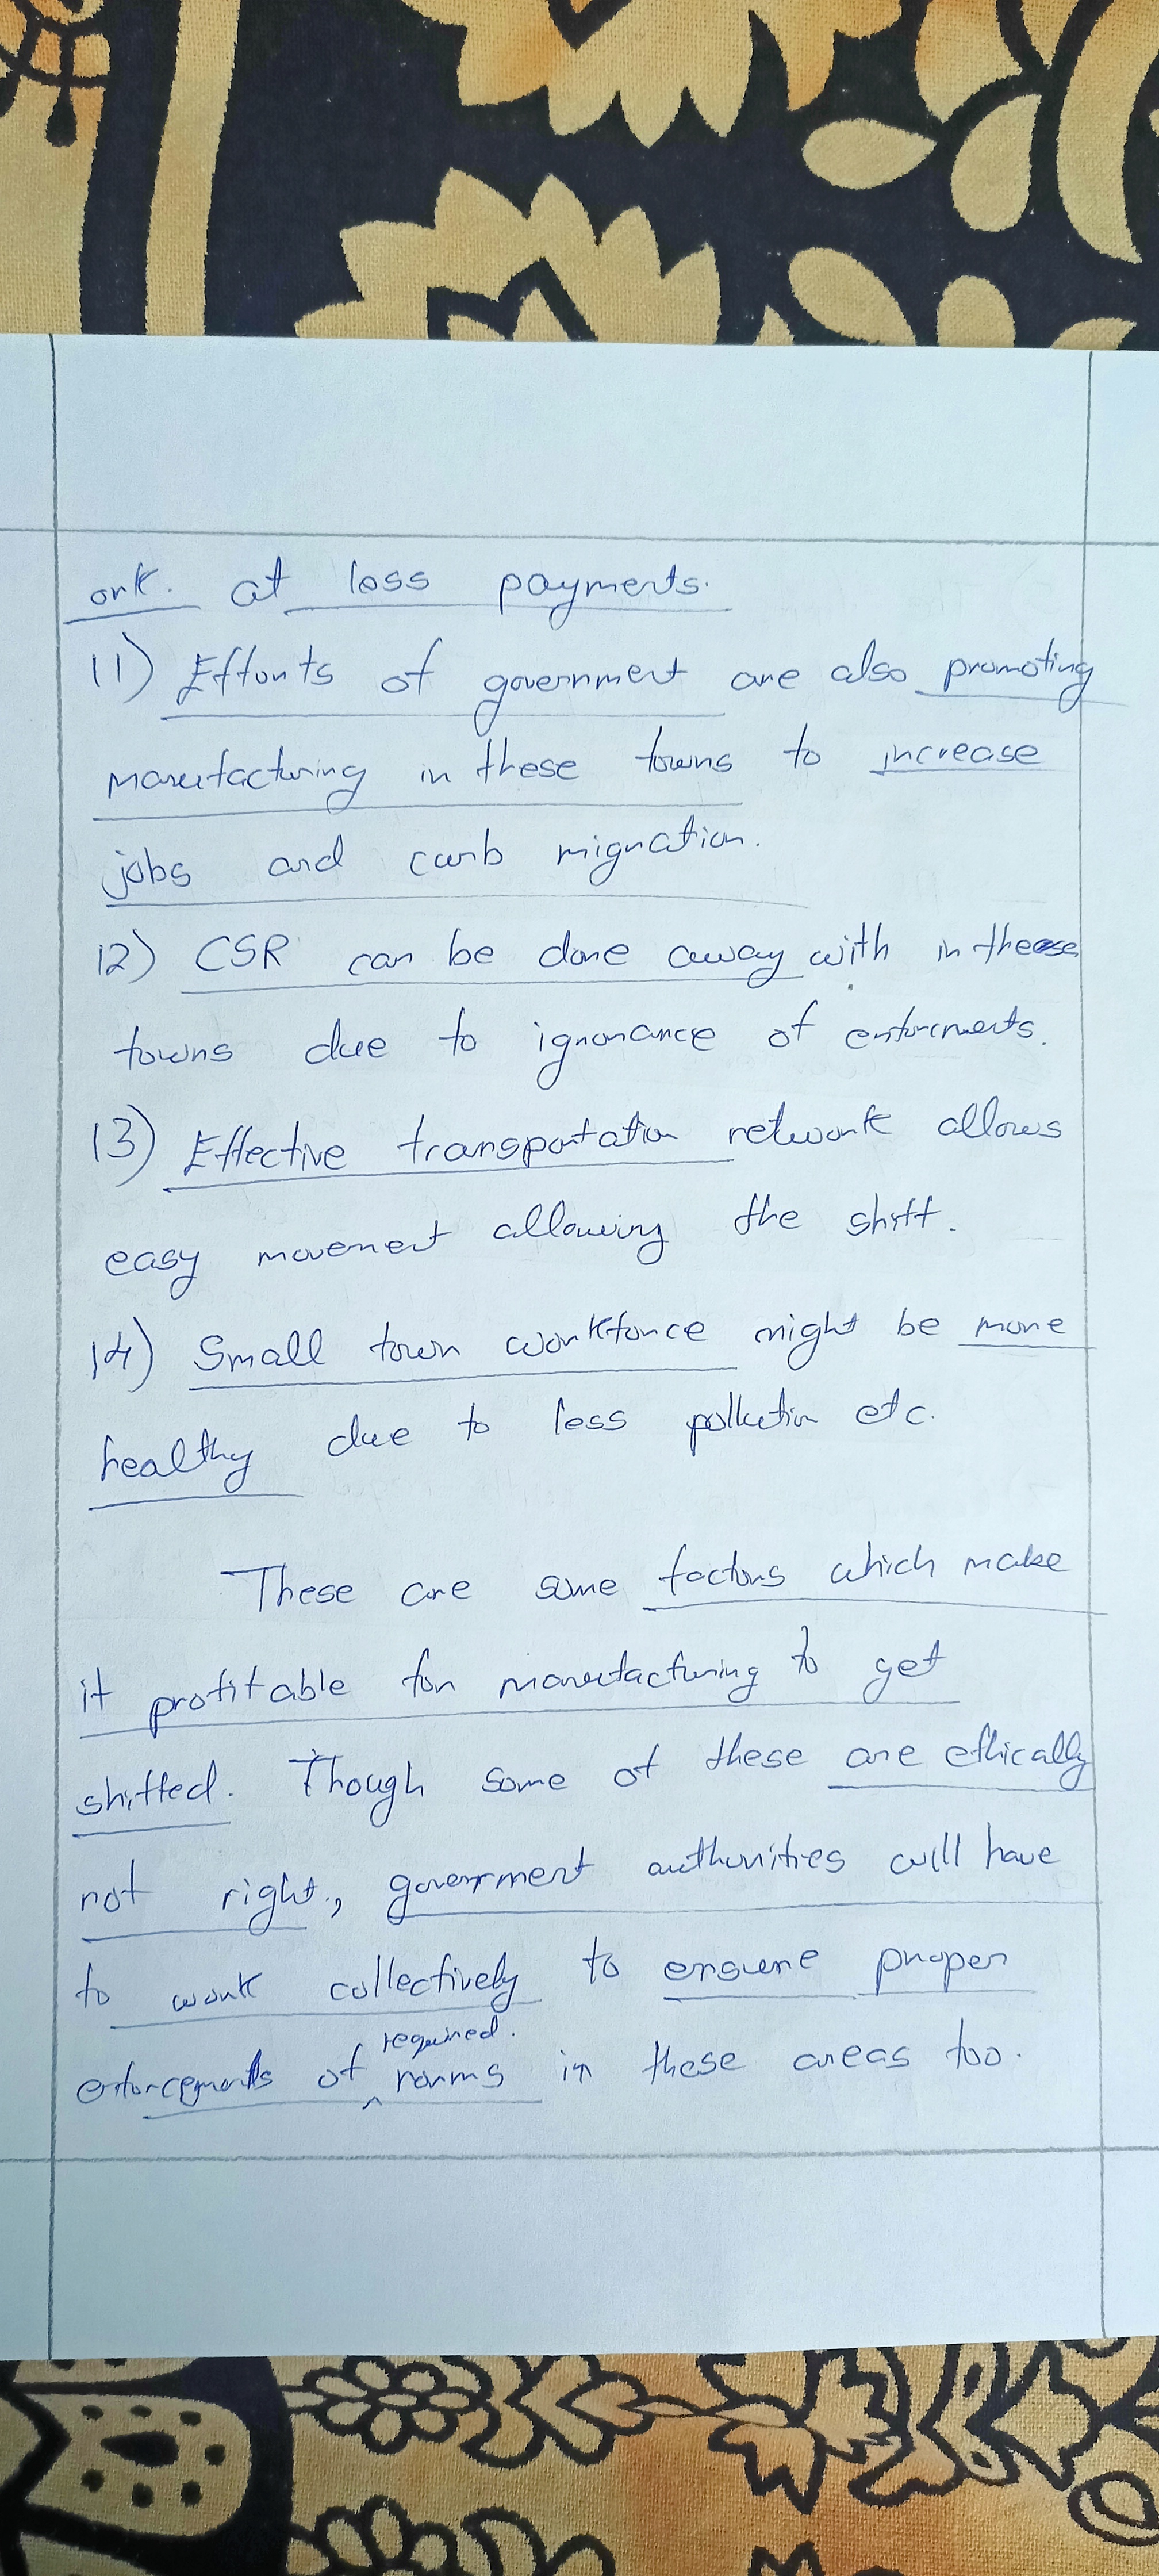 ork. at less payments.
11) Efforts of government are also promoting
manufacturing in these towns to increase
jobs and curb migration.
12) CSR can be done away with in these
towns due to ignorance of enforcments.
13) Effective transportation network allows
easy movement allowing the shift.
14) Small town workforce might be more
healthy due to less pollution etc.
These are some factors which make
it profitable for manufacturing to get
shifted. Though some of these are ethically
not right, government authorities will have
to work collectively to ensure proper
required.
enforcements of norms in these areas too.